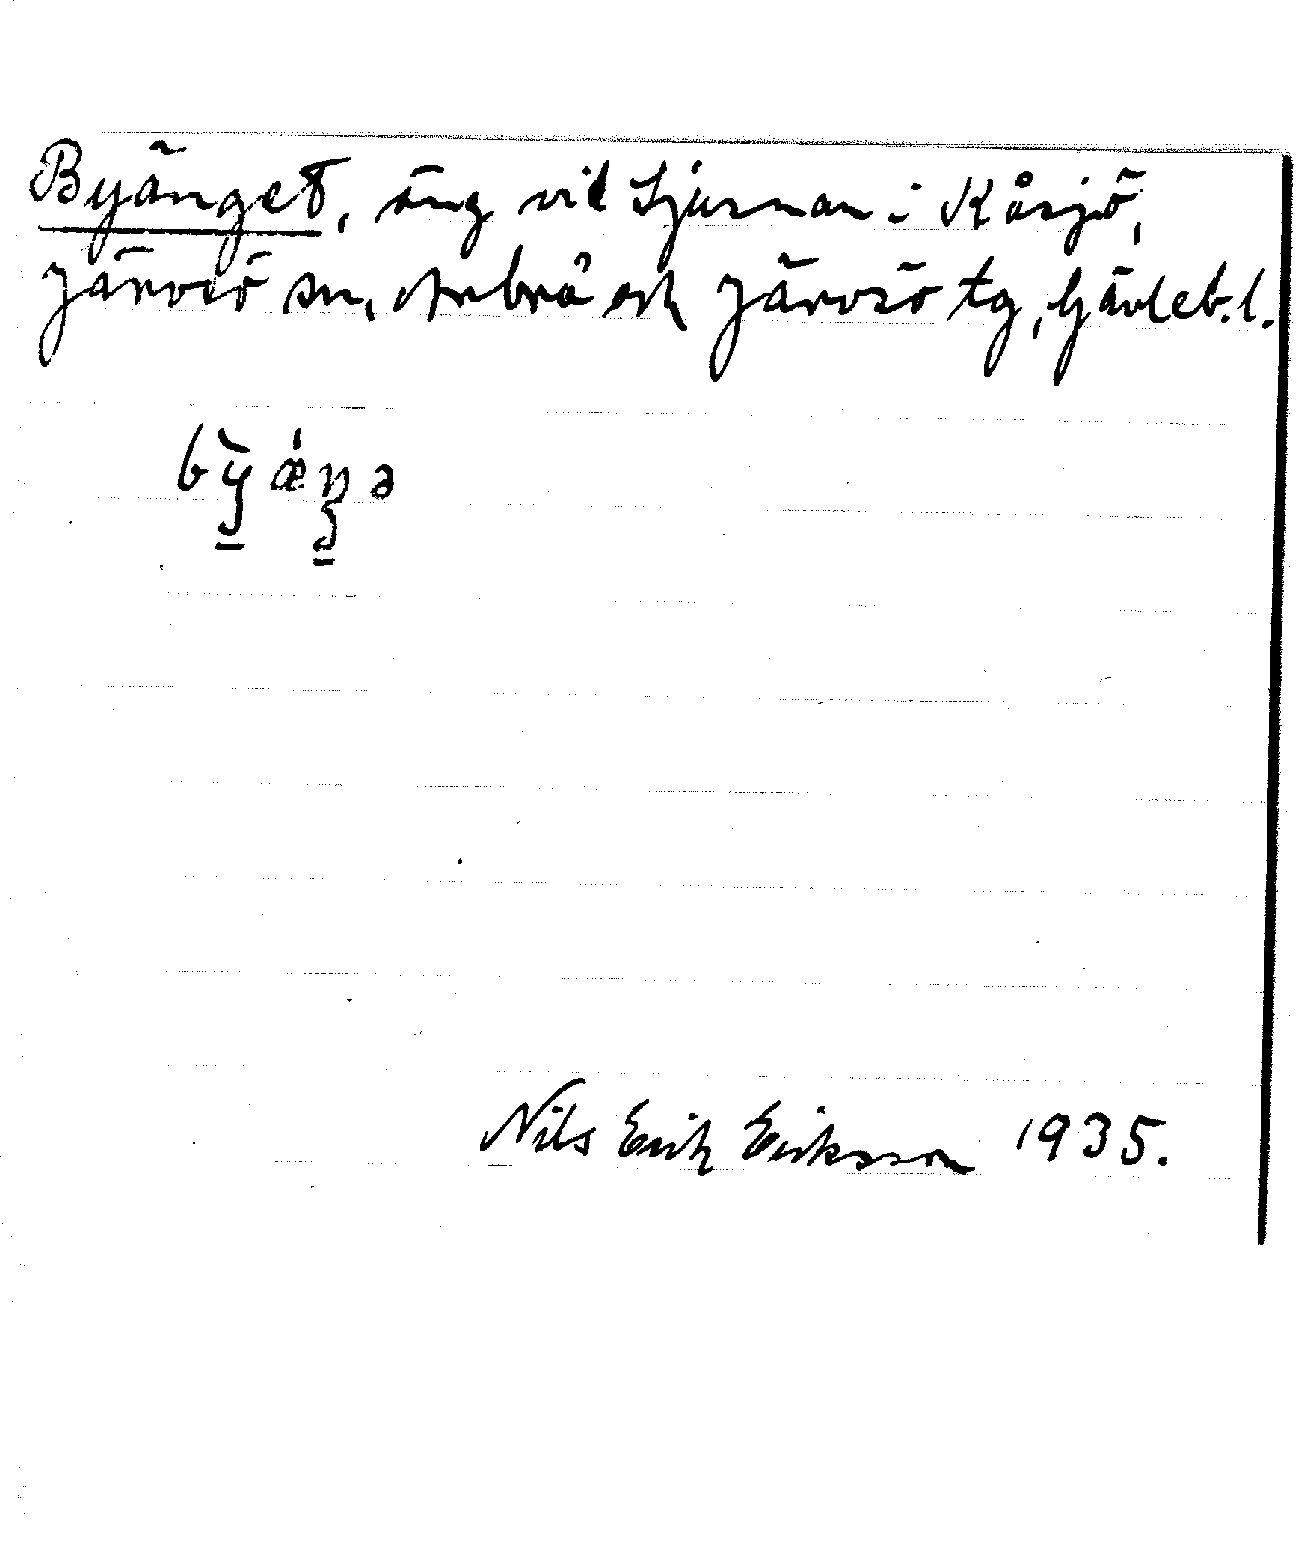 Byänget, äng vid Ljusnan i Kåsjö,
Järvsö sn, Arbrå och Järvsö tg, Gävleb. l.
bỳ̱ǽŋ̱ə
Nils Erik Eriksson 1935.